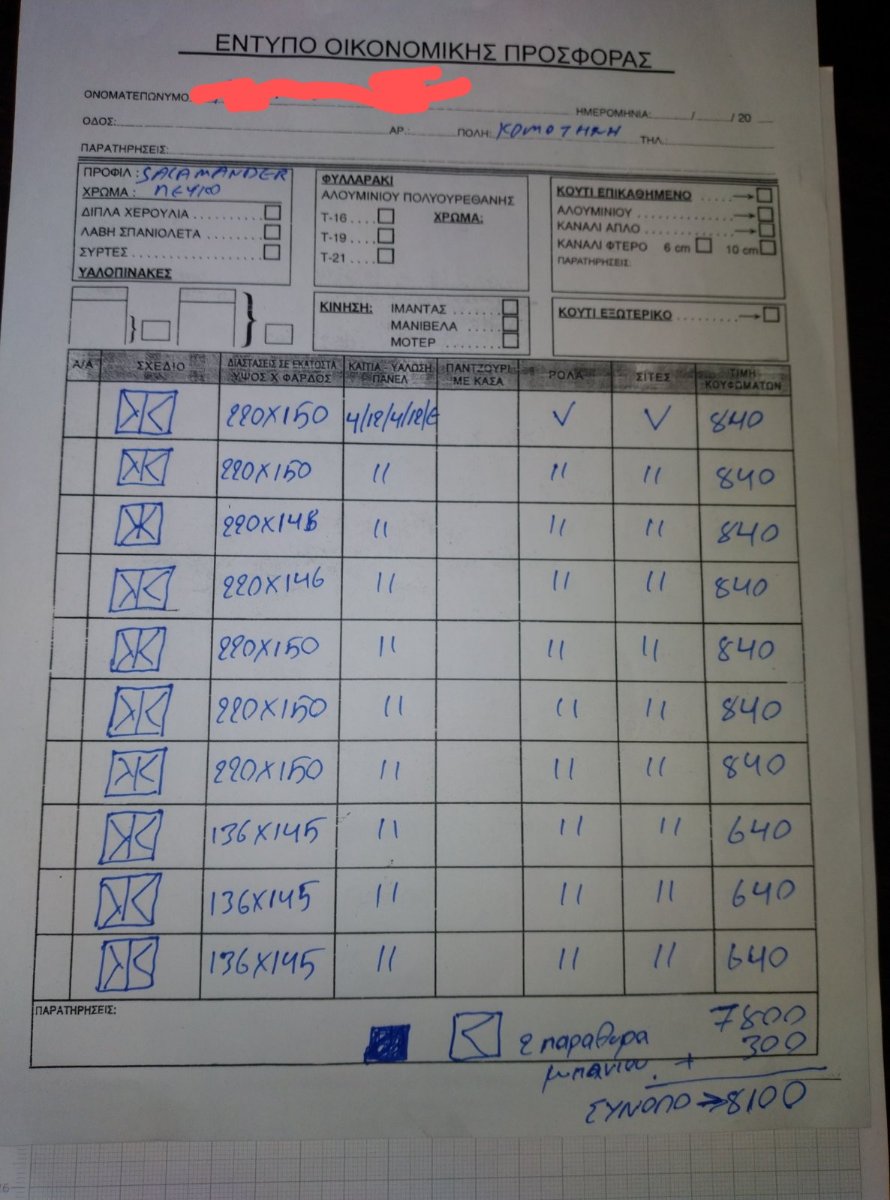 ΕΝΤΥΠΟ ΟΙΚΟΝΟΜΙΚΗΣ ΠΡΟΣΦΟΡΑΣ
ΟΝΟΜΑΤΕΠΩΝΥΜΟ:
ΗΜΕΡΟΜΗΝΙΑ: / / 20
ΟΔΟΣ: ΑΡ.: ΠΟΛΗ: ΚΟΜΟΤΗΝΗ ΤΗΛ.:
ΠΑΡΑΤΗΡΗΣΕΙΣ:
ΠΡΟΦΙΛ : SALAMANDER
ΧΡΩΜΑ : ΛΕΥΚΟ
ΔΙΠΛΑ ΧΕΡΟΥΛΙΑ
ΛΑΒΗ ΣΠΑΝΙΟΛΕΤΑ
ΣΥΡΤΕΣ
ΥΑΛΟΠΙΝΑΚΕΣ
ΦΥΛΛΑΡΑΚΙ
ΑΛΟΥΜΙΝΙΟΥ ΠΟΛΥΟΥΡΕΘΑΝΗΣ
Τ-16 ΧΡΩΜΑ:
Τ-19
Τ-21
ΚΟΥΤΙ ΕΠΙΚΑΘΗΜΕΝΟ
ΑΛΟΥΜΙΝΙΟΥ
ΚΑΝΑΛΙ ΑΠΛΟ
ΚΑΝΑΛΙ ΦΤΕΡΟ 6 cm 10 cm
ΠΑΡΑΤΗΡΗΣΕΙΣ:
ΚΙΝΗΣΗ: ΙΜΑΝΤΑΣ
ΜΑΝΙΒΕΛΑ
ΜΟΤΕΡ
ΚΟΥΤΙ ΕΞΩΤΕΡΙΚΟ
Α/Α ΣΧΕΔΙΟ ΔΙΑΣΤΑΣΕΙΣ ΣΕ ΕΚΑΤΟΣΤΑ ΥΨΟΣ Χ ΦΑΡΔΟΣ ΚΑΪΤΙΑ - ΥΑΛΩΣΗ ΠΑΝΕΛ ΠΑΝΤΖΟΥΡΙ ΜΕ ΚΑΣΑ ΡΟΛΑ ΣΙΤΕΣ ΤΙΜΗ ΚΟΥΦΩΜΑΤΩΝ
220X150 4/12/4/12/Ε √ √ 840
220X150 '' '' '' 840
220X148 '' '' '' 840
220X146 '' '' '' 840
220X150 '' '' '' 840
220X150 '' '' '' 840
220X150 '' '' '' 840
136X145 '' '' '' 640
136X145 '' '' '' 640
136X145 '' '' '' 640
ΠΑΡΑΤΗΡΗΣΕΙΣ:
7800
2 παραθυρα 300
μπανιου. +
ΣΥΝΟΛΟ → 8100